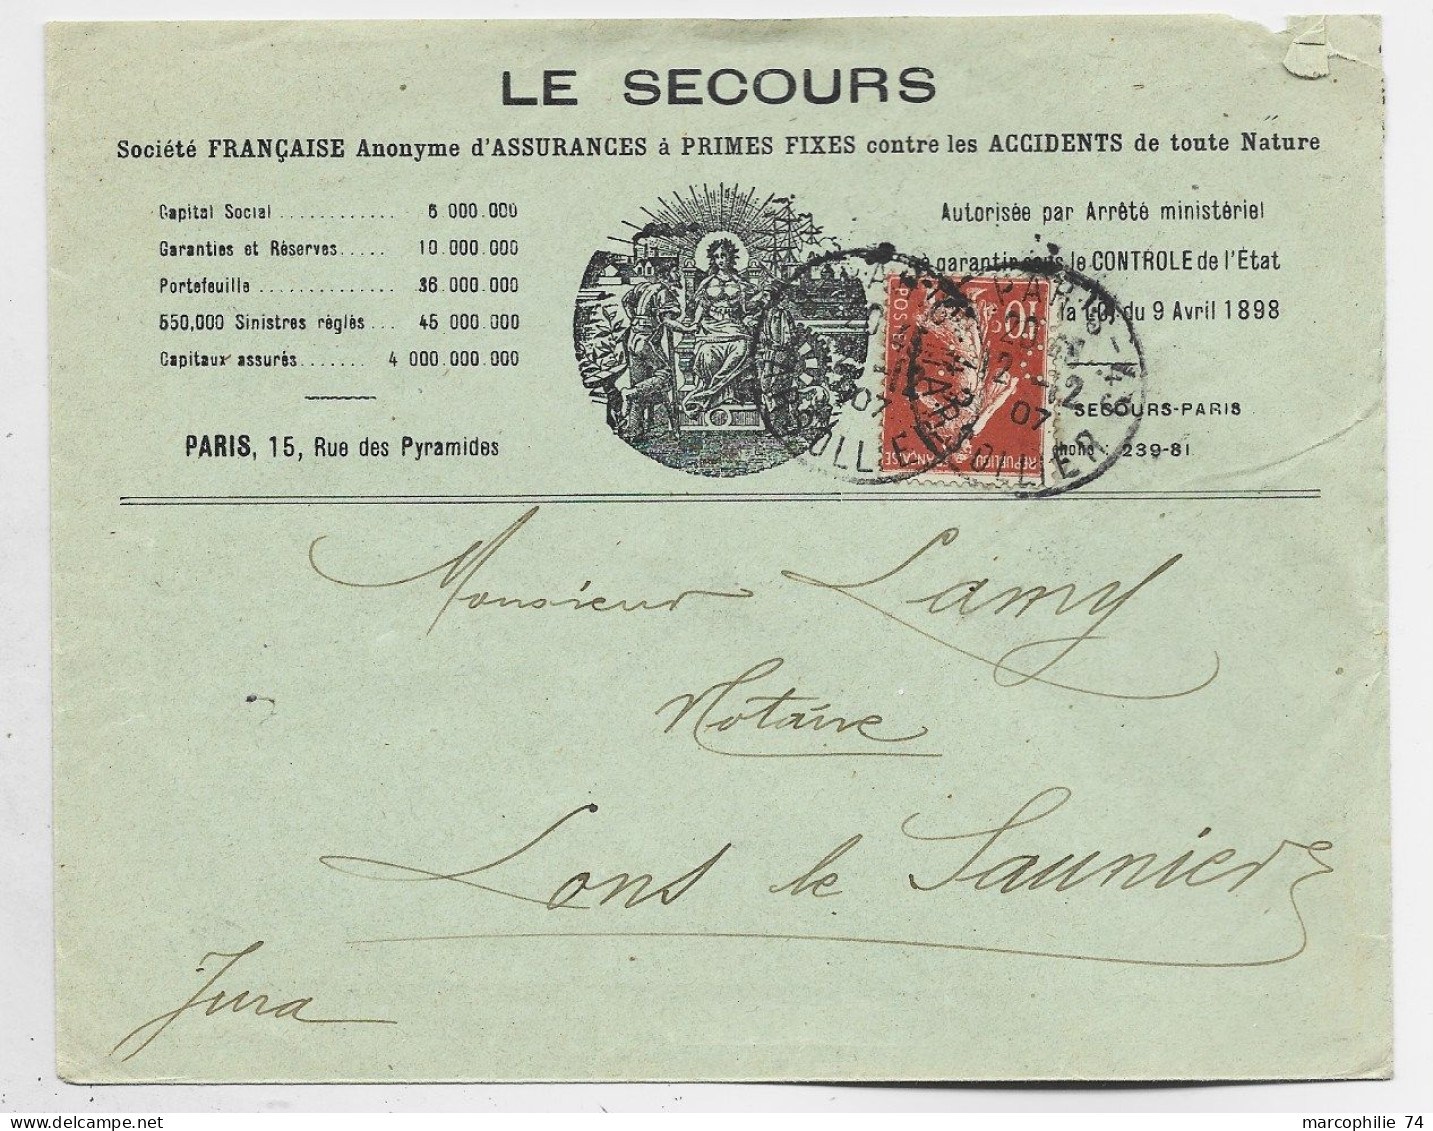 LE SECOURS
Société FRANÇAISE Anonyme d'ASSURANCES à PRIMES FIXES contre les ACCIDENTS de toute Nature
Capital Social ............ 6 000.000
Garanties et Réserves..... 10.000.000
Portefeuille .............. 36 000.000
550,000 Sinistres réglés ... 45 000.000
Capitaux assurés....... 4 000.000.000
PARIS, 15, Rue des Pyramides
Autorisée par Arrêté ministériel
à garantir sous le CONTROLE de l'État
la Loi du 9 Avril 1898
SECOURS-PARIS
239-81
POSTES
10
REPUBLIQUE FRANÇAISE
PARIS
12 -12
07
Monsieur Lamy
Notaire
Lons le Saunier
Jura
marcophilie 74